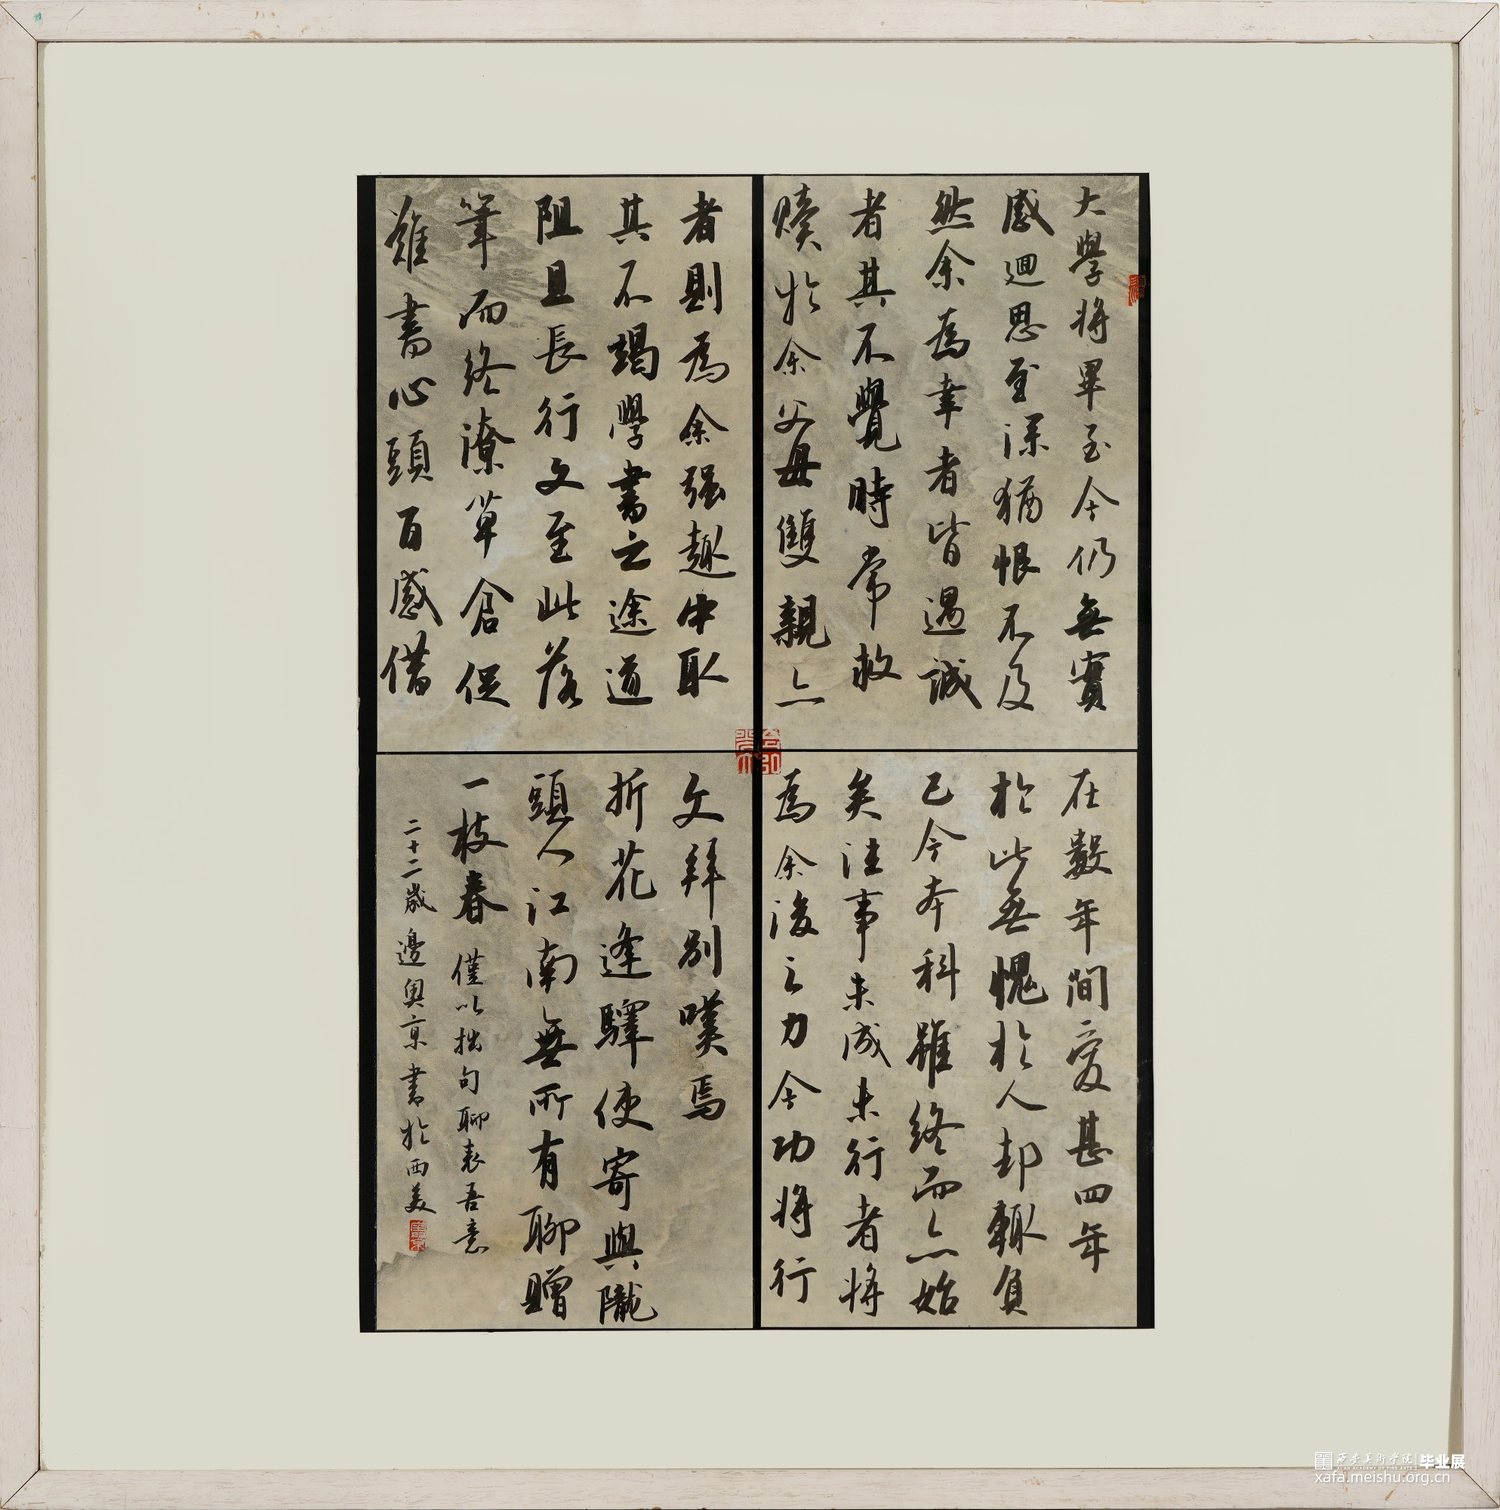 大學將畢至今仍無實
感迴思至深猶恨不及
然余為幸者皆遇誠
者其不覺時常救
贖於余父母雙親亦
在數年間愛甚四年
於此無愧於人却輒負
己今本科雖終而亦始
矣往事未成未行者將
為余後之力令功將行
者則為余强趣中取
其不竭學書之途道
阻且長行文至此落
筆而終潦草倉促
難書心頭百感借
文拜別嘆焉
折花逢驛使寄與隴
頭人江南無所有聊贈
一枝春 僅以拙句聊表吾意
二十二歲邊奧京書於西美
西安美術學院 毕业展
xafa.meishu.org.cn